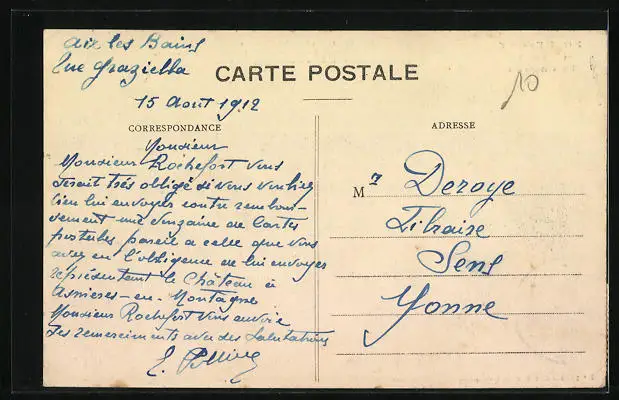 Aix les Bains
Rue Graziella
CARTE POSTALE
10
15 Aout 1912
CORRESPONDANCE
Monsieur
Monsieur Rochefort vous
serait très obligé si vous vouliez
bien lui envoyer contre rembour-
sement une douzaine de cartes
postales pareil a celle que vous
avez eu l'obligence de lui envoyer
représentant le Château à
Asnieres-en-Montagne
Monsieur Rochefort vous envoie
ses remerciments avec ses Salutations
E.
ADRESSE
Mr Deroye
Libraire
Sens
Yonne